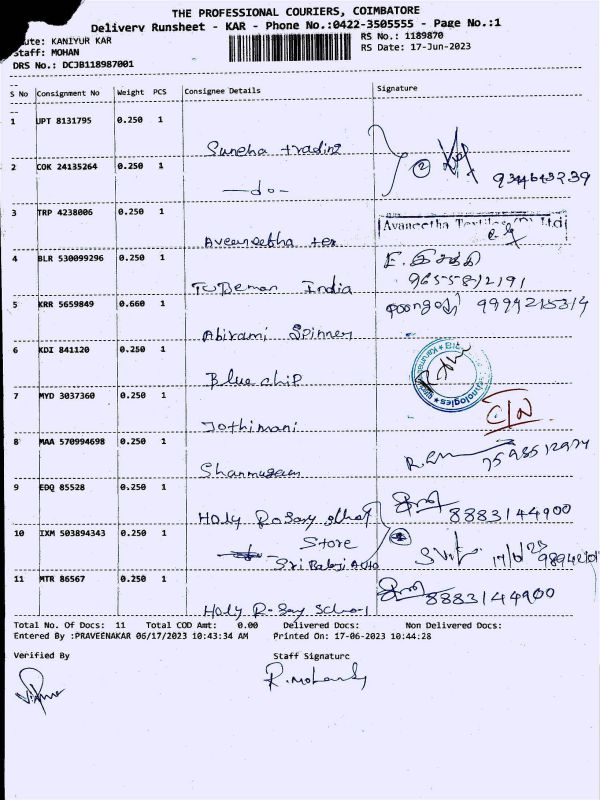 THE PROFESSIONAL COURIERS, COIMBATORE
Delivery Runsheet - KAR - Phone No.:0422-3505555 - Page No.:1
ute: KANIYUR KAR
RS No.: 1189870
Staff: MOHAN
RS Date: 17-Jun-2023
DRS No.: DCJB118987001
S No Consignment No Weight PCS Consignee Details Signature
1 UPT 8131795 0.250 1
Suneha trading
2 COK 24135264 0.250 1
-do-
3 TRP 4238006 0.250 1
Avaneetha Textiles (P) Ltd
4 BLR 530099296 0.250 1
India
9655812191
5 KRR 5659849 0.660 1
9994215314
Abirami Spinners
6 KDI 841120 0.250 1
Blue chip
7 MYD 3037360 0.250 1
C/N
Jothimani
8 MAA 570994698 0.250 1
Shanmugam
9 EDQ 85528 0.250 1
8883144900
Holy Rosary
10 IXM 503894343 0.250 1
Store
Sri Balaji Auto
17/6/23
11 MTR 86567 0.250 1
8883144900
Holy Rosary School
Total No. Of Docs: 11 Total COD Amt: 0.00 Delivered Docs: Non Delivered Docs:
Entered By :PRAVEENAKAR 06/17/2023 10:43:34 AM Printed On: 17-06-2023 10:44:28
Verified By Staff Signature